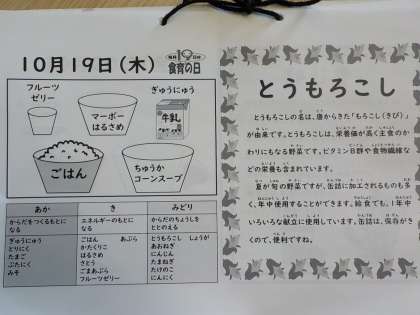 10月19日(木)
毎月19日は
食育の日
フルーツ
ゼリー
マーボー
はるさめ
ぎゅうにゅう
牛乳
ごはん
ちゅうか
コーンスープ
あか
き
みどり
からだをつくるもとに
なる
エネルギーのもとに
なる
からだのちょうしを
ととのえる
ぎゅうにゅう
とりにく
たまご
ぶたにく
みそ
ごはん あぶら
かたくりこ
はるさめ
さとう
ごまあぶら
フルーツゼリー
とうもろこし しょうが
あおねぎ
にんじん
たまねぎ
たけのこ
にんにく
とうもろこし
とうもろこしの名は、唐からきた「もろこし(きび)」
が由来です。とうもろこしは、栄養価が高く主食のか
わりにもなる野菜です。ビタミンB群や食物繊維な
どの栄養も含まれています。
夏が旬の野菜ですが、缶詰に加工されるものも多
く、年中使用することができます。給食でも、1年中
いろいろな献立に使用しています。缶詰は、保存がき
くので、便利ですね。